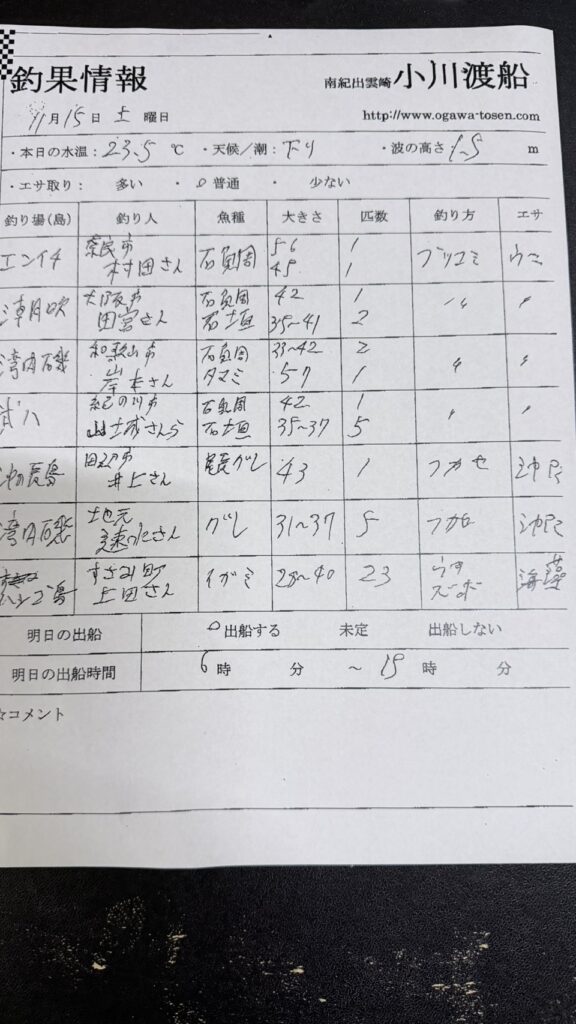 釣果情報
南紀出雲崎 小川渡船
11月15日 土 曜日
http://www.ogawa-tosen.com
・本日の水温：23.5 ℃ ・天候/潮：下り ・波の高さ 1.5 m
・エサ取り： 多い ・ 0 普通 ・ 少ない
釣り場(島) 釣り人 魚種 大きさ 匹数 釣り方 エサ
奈良市 56 1
エンイチ 村田さん 石鯛 45 1 ブツコミ ウニ
大阪市 42 1
潮吹 田宮さん 石垣 35〜41 2 〃 〃
和歌山市 33〜42 2
湾内磯 岸本さん タマミ 57 1 〃 〃
紀の川市 42 1
山城さんら 石垣 35〜37 5 〃 〃
田辺市
沖の長島 井上さん 尾長グレ 43 1 フカセ 沖アミ
地元
湾内磯 速水さん グレ 31〜37 5 フカセ 沖アミ
すさみ町
ハシゴ島 上田さん イガミ 28〜40 23 ウキ ズボ 海藻
明日の出船 0 出船する 未定 出船しない
明日の出船時間 6 時 分 〜 15 時 分
☆コメント